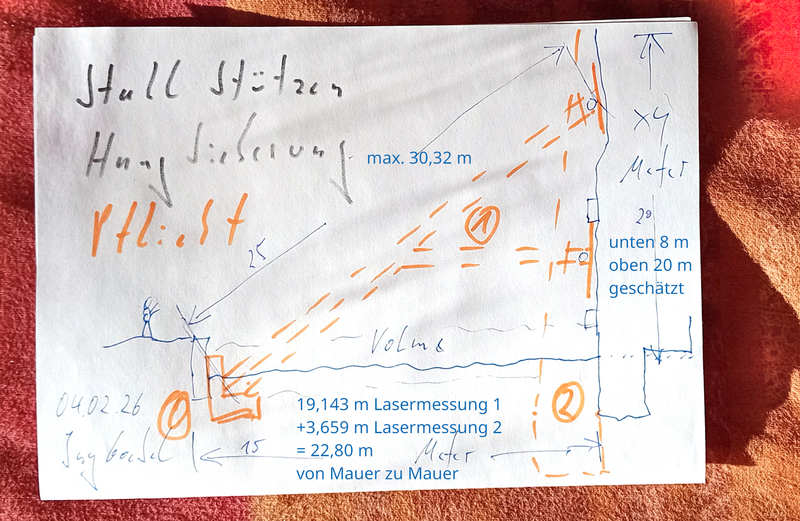 Stall Stützen
Hang Sicherung
Pflicht
max. 30,32 m
25
1
x4
Meter
20
unten 8 m
oben 20 m
geschätzt
Volme
04.02.26
1
19,143 m Lasermessung 1
+3,659 m Lasermessung 2
= 22,80 m
von Mauer zu Mauer
2
15
Meter